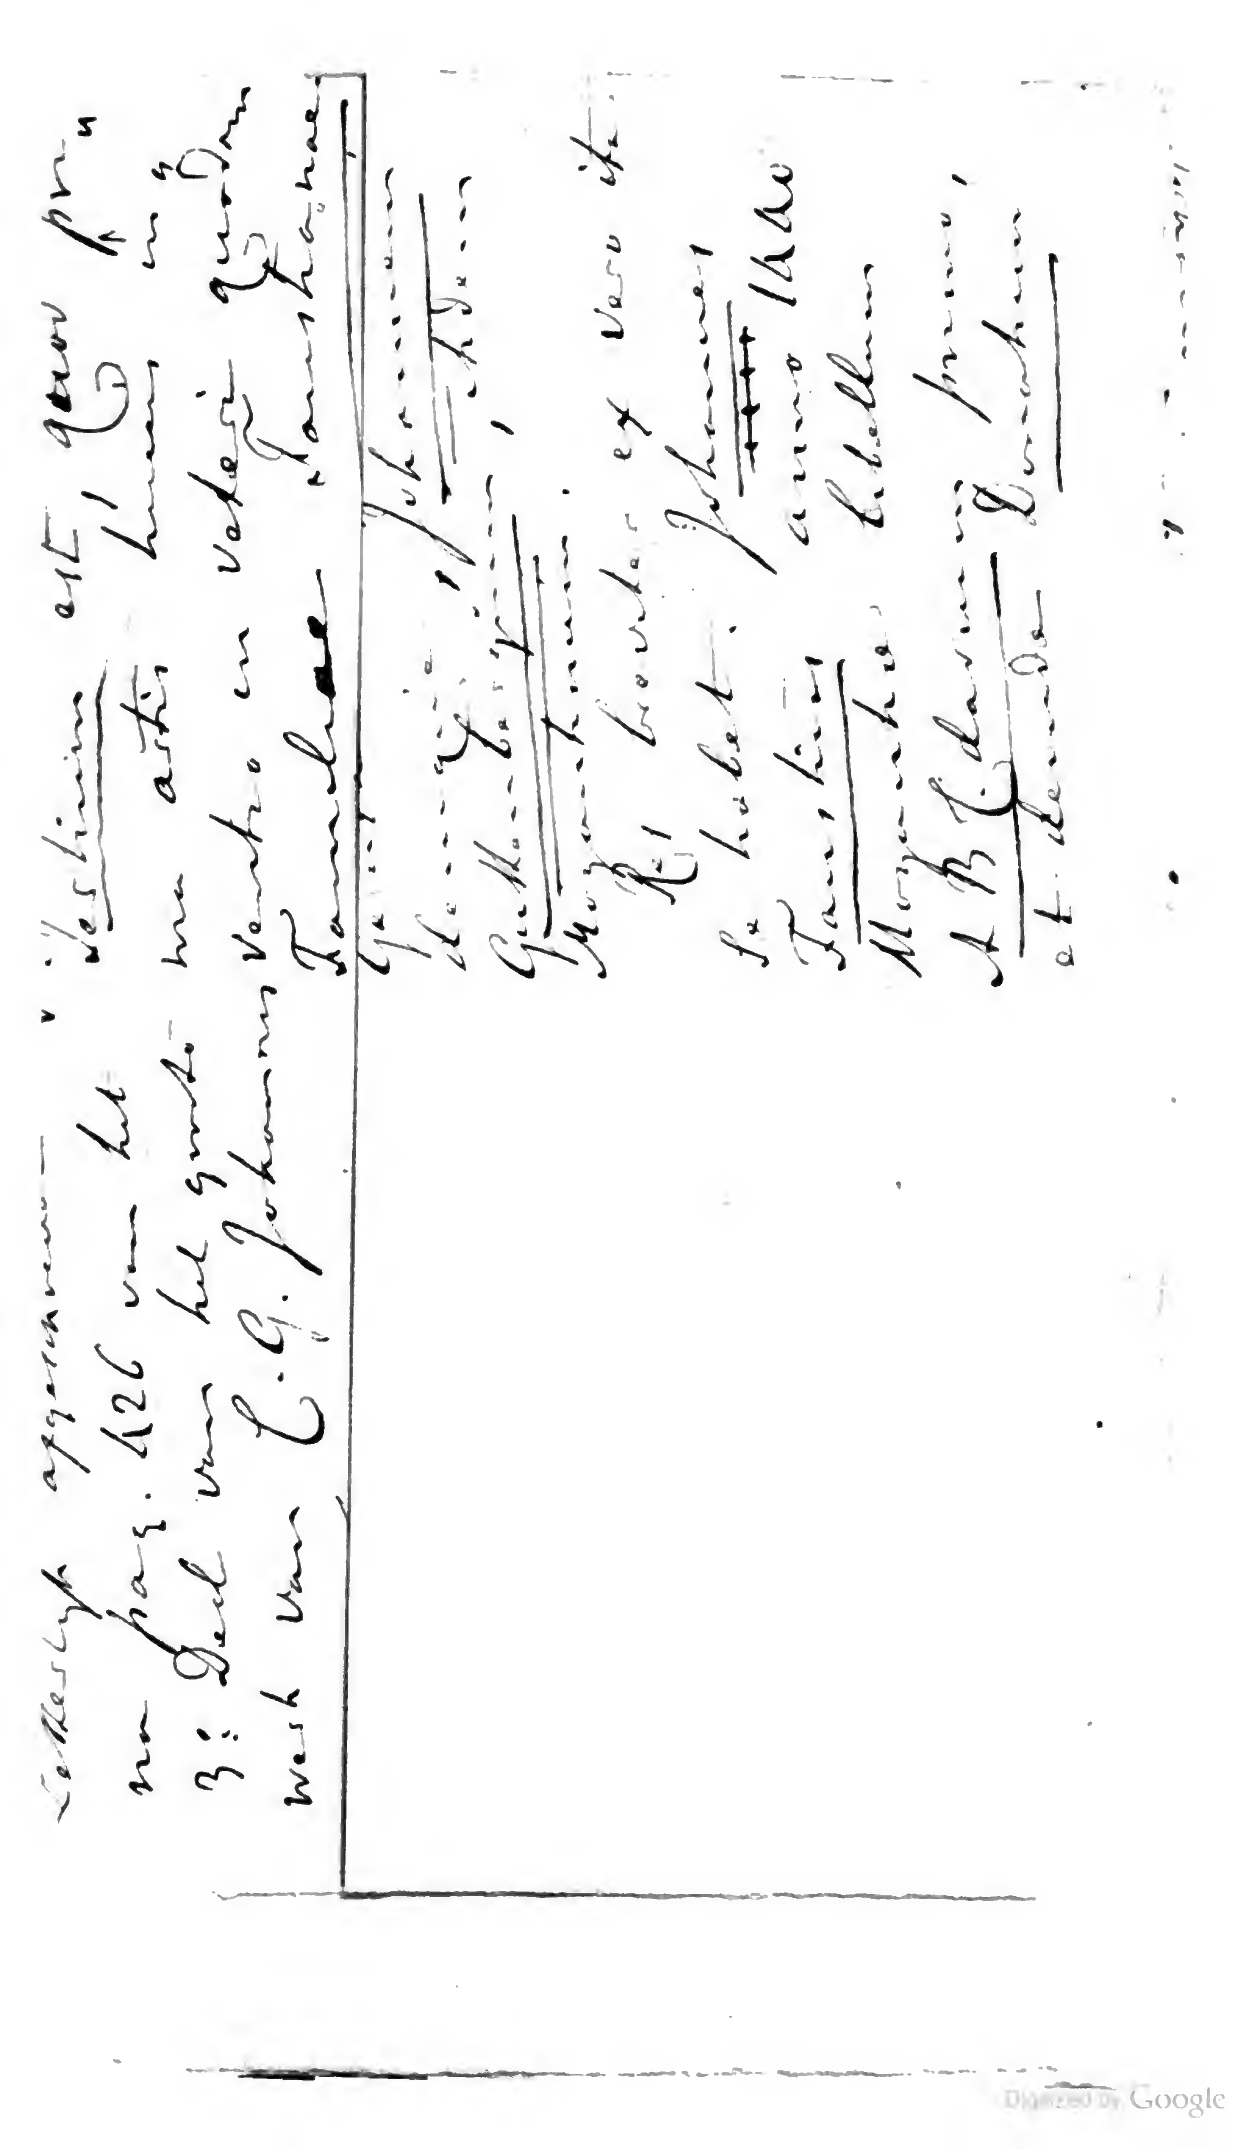 Letterlyk afgeschreven
na pag. 426 van het
3e Deel van het groote
werk van C. G. Johannis
Testium est, quod pri
mus artis huius in
ventro in veteri quodam
Familiae Faustianae
denique, Johannem
Guthenbergium, itidem
Moguntinum.
Res breviter ex vero ita
se habet. Johannes
Faustius anno 1440
Moguntiae libellum
A B C. darium primo,
et deinde Donatum
Digitized by Google